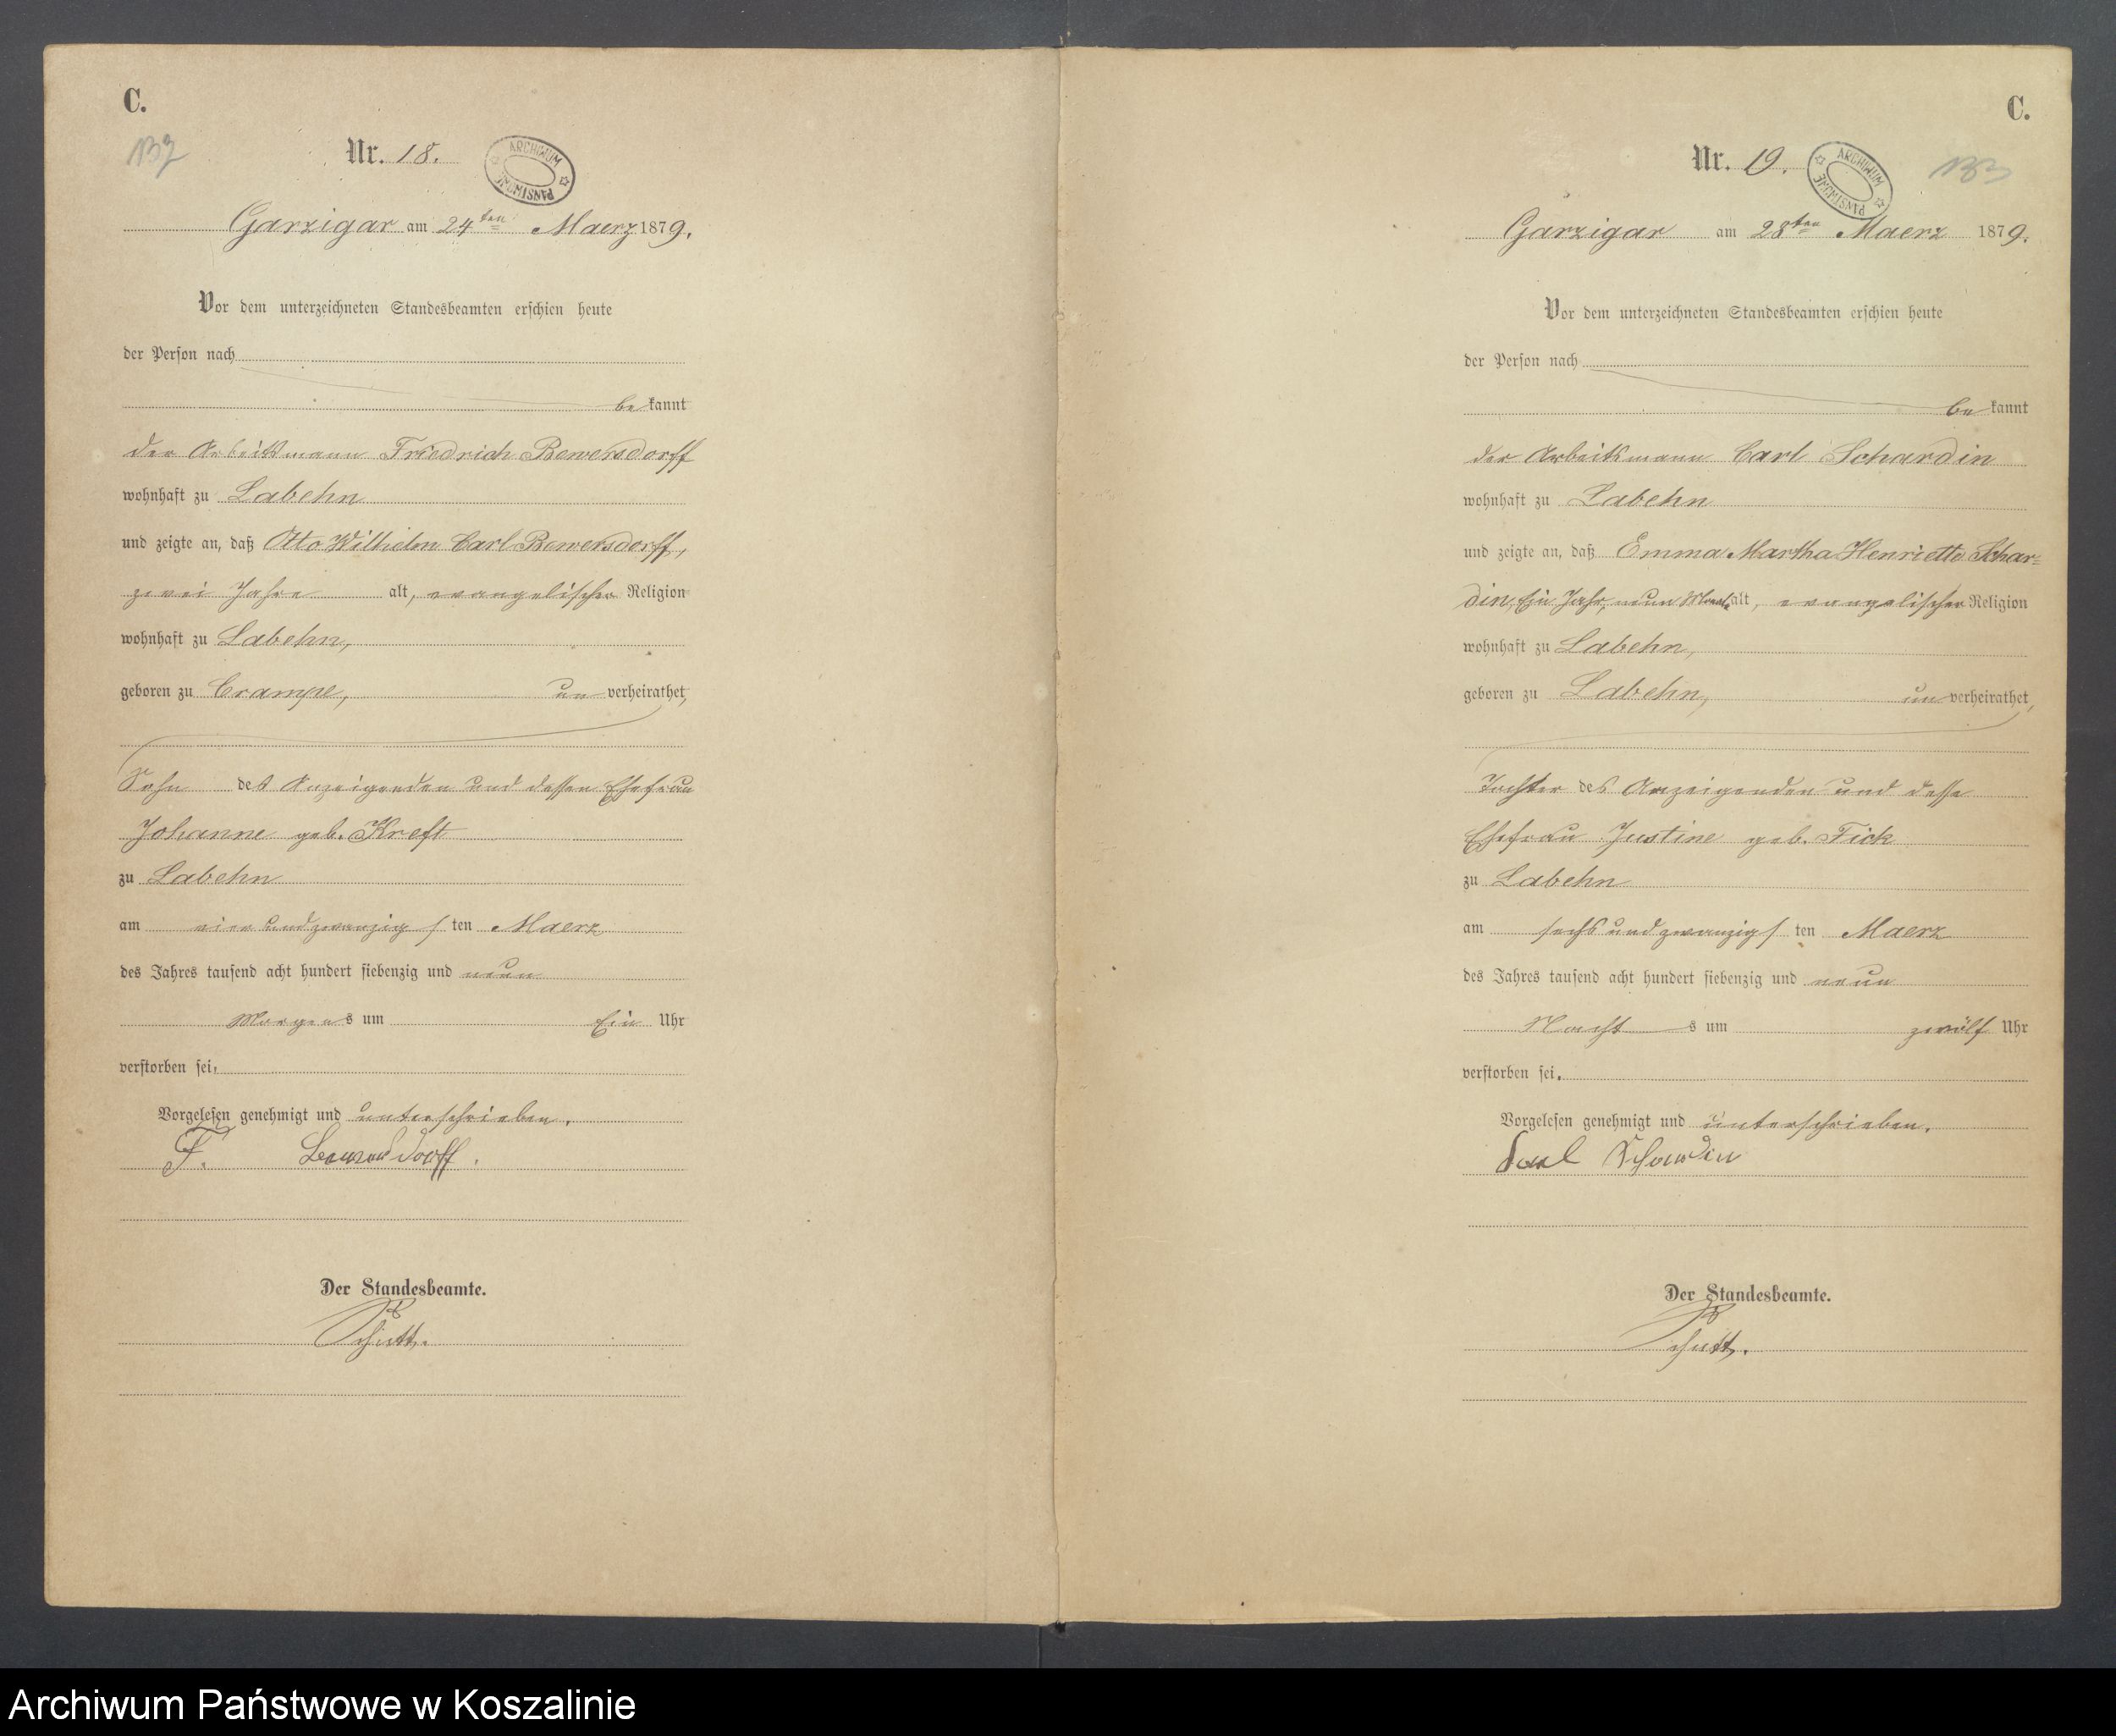 C.
137
Nr. 18.
ARCHIWUM PAŃSTWOWE
Garzigar am 24ten Maerz 1879.
Vor dem unterzeichneten Standesbeamten erschien heute
der Person nach
be kannt
der Arbeitsmann Friedrich Bewersdorff
wohnhaft zu Labehn
und zeigte an, daß Otto Wilhelm Carl Bewersdorff,
zwei Jahre alt, evangelischer Religion
wohnhaft zu Labehn,
geboren zu Crampe, un verheirathet,
Sohn des Anzeigenden und dessen Ehefrau
Johanne geb. Kreft
zu Labehn
am vier und zwanzigsten Maerz
des Jahres tausend acht hundert siebenzig und neun
Morgens um Ein Uhr
verstorben sei.
Vorgelesen genehmigt und unterschrieben.
F. Bewersdorff.
Der Standesbeamte.
Schütt.
C.
Nr. 19.
ARCHIWUM PAŃSTWOWE
Garzigar am 28ten Maerz 1879.
Vor dem unterzeichneten Standesbeamten erschien heute
der Person nach
be kannt
der Arbeitsmann Carl Schardin
wohnhaft zu Labehn
und zeigte an, daß Emma Martha Henriette Schar=
din, Ein Jahr, neun Monate alt, evangelischer Religion
wohnhaft zu Labehn,
geboren zu Labehn, un verheirathet,
Tochter des Anzeigenden und desse
Ehefrau Justine geb. Fick
zu Labehn
am sechs und zwanzigsten Maerz
des Jahres tausend acht hundert siebenzig und neun
Nachts um zwölf Uhr
verstorben sei.
Vorgelesen genehmigt und unterschrieben.
Carl Schardin
Der Standesbeamte.
Schütt.
Archiwum Państwowe w Koszalinie